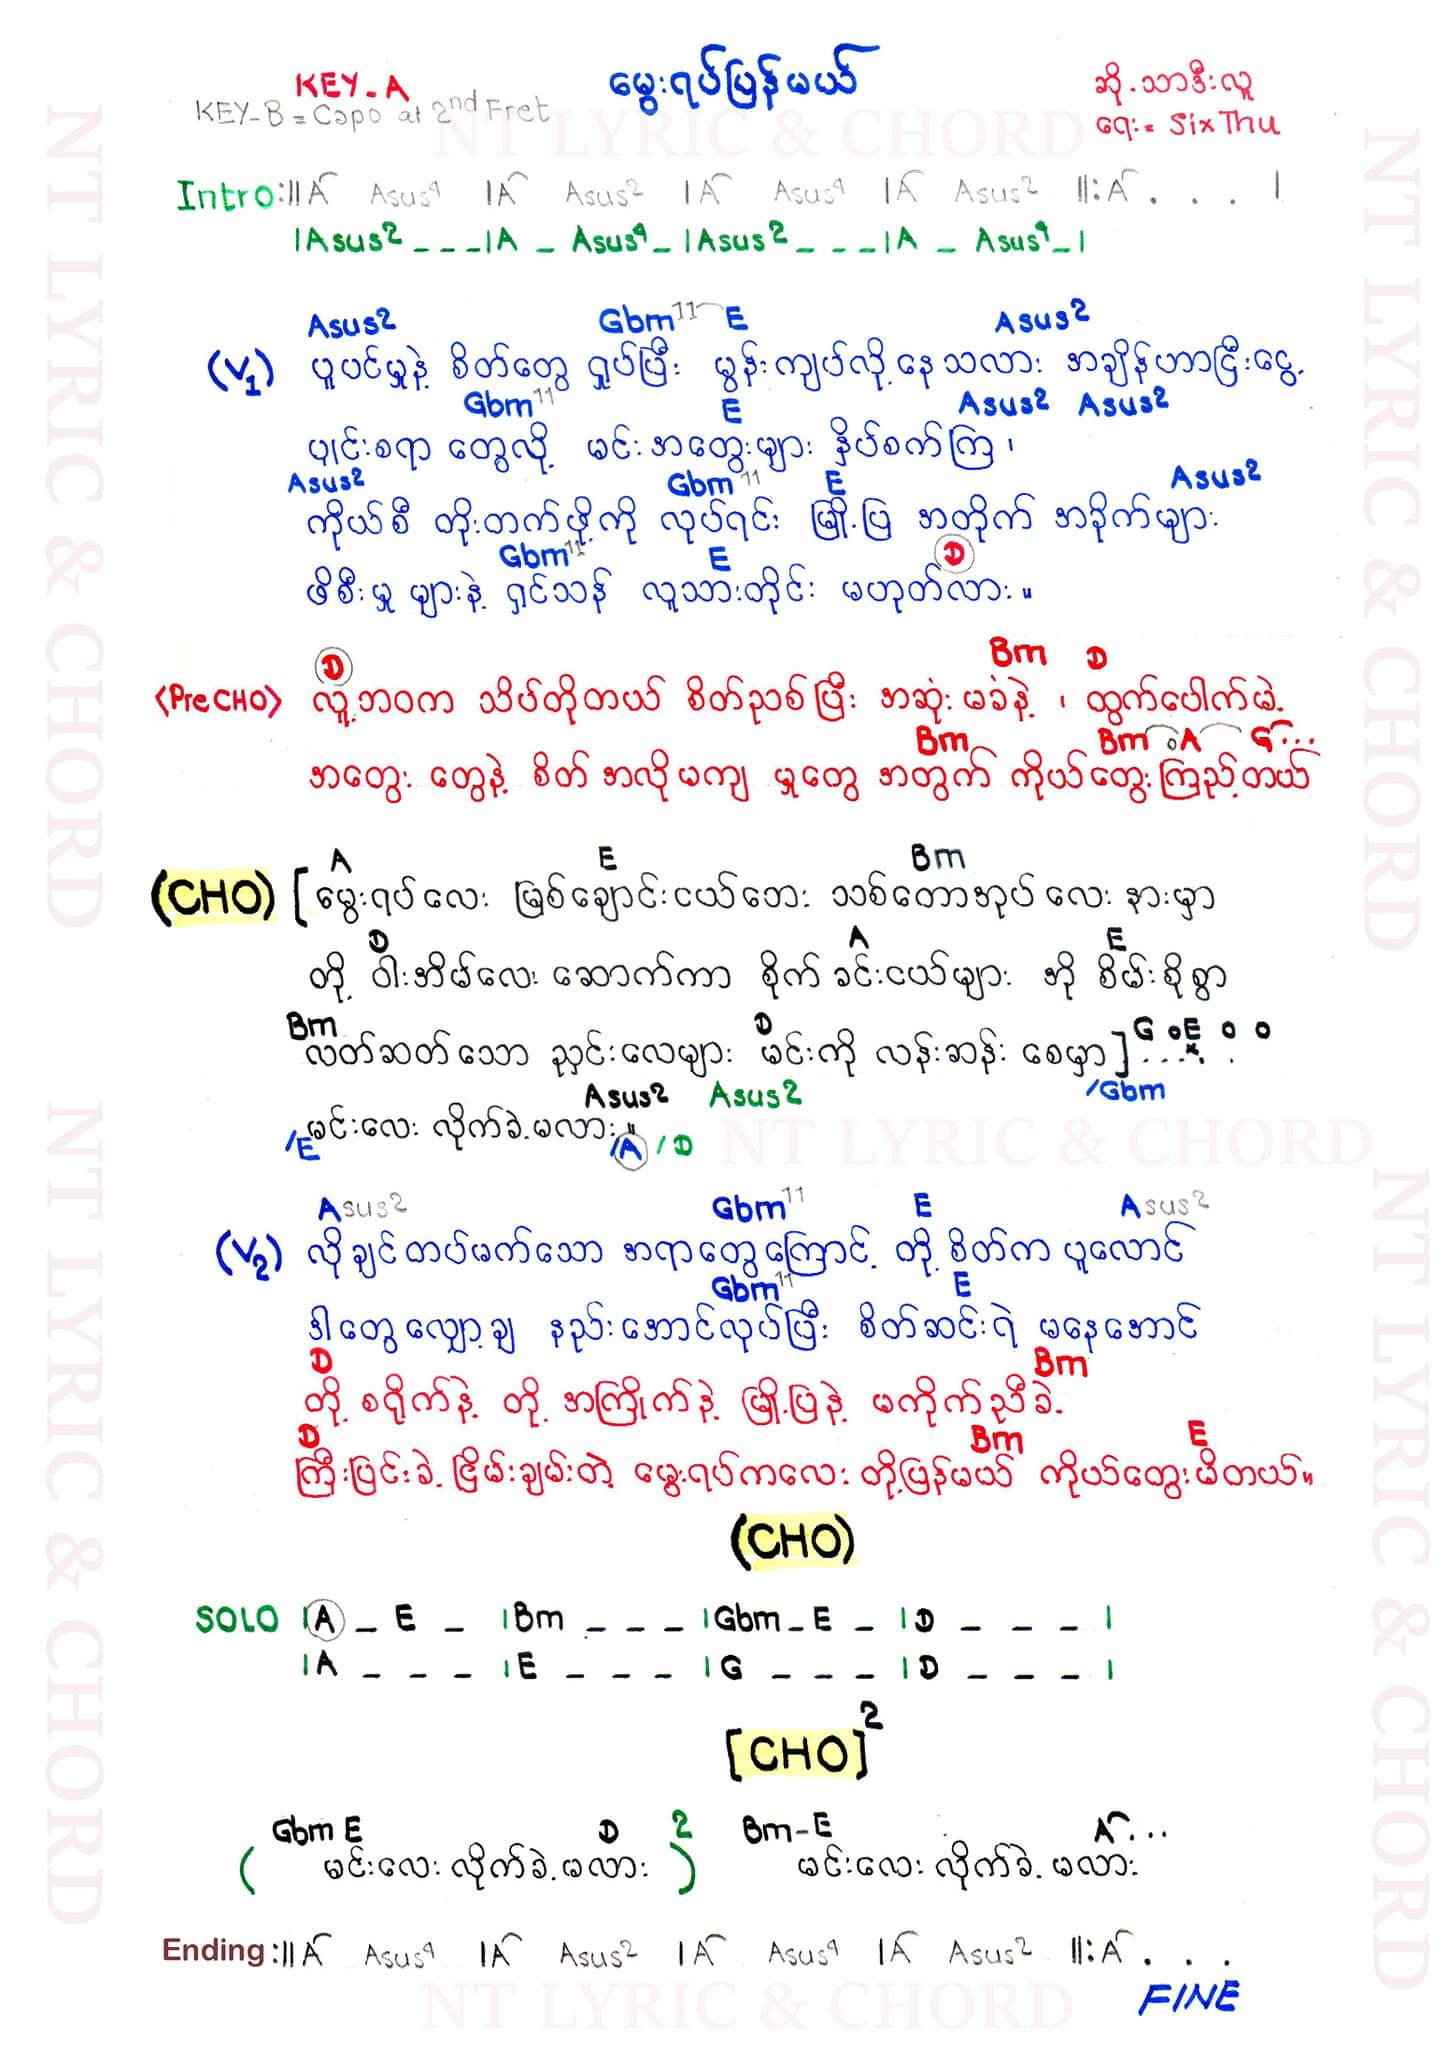 မွေးရပ်ပြန်မယ်
KEY-A
KEY-B = Capo at 2nd Fret
ဆို-သာဒီးလူ
ရေး = SixThu
Intro:|| A Asus4 | A Asus2 | A Asus4 | A Asus2 ||: A . . . |
|Asus2 _ _ _ |A _ Asus4 _ |Asus2 _ _ _ |A _ Asus4 _ |
Asus2 Gbm11 E Asus2
(V1) ပူပင်မှုနဲ့ စိတ်တွေ ရှုပ်ပြီး မွန်းကျပ်လို့နေသလား အချိန်ဟာငြီးငွေ့
Gbm11 E Asus2 Asus2
ပျင်းစရာ တွေလို့ မင်းအတွေးများ နှိပ်စက်ကြ ၊
Asus2 Gbm11 E Asus2
ကိုယ်စီ တိုးတက်ဖို့ကို လုပ်ရင်း မြို့ပြ အတိုက် အခိုက်များ
Gbm11 E D
ဖိစီးမှု များနဲ့ ရှင်သန် လူသားတိုင်း မဟုတ်လား ။
D Bm D
<Pre CHO> လူ့ဘဝက သိပ်တိုတယ် စိတ်ညစ်ပြီး အဆုံးမခံနဲ့ ၊ ထွက်ပေါက်မဲ့
Bm Bm A G...
အတွေး တွေနဲ့ စိတ်အလိုမကျ မှုတွေ အတွက် ကိုယ်တွေးကြည့်တယ်
A E Bm
(CHO) [ မွေးရပ်လေး မြစ်ချောင်းငယ်ဘေး သစ်တောအုပ်လေး နားမှာ
D A E
တို့ ဝါးအိမ်လေး ဆောက်ကာ စိုက်ခင်းငယ်များ အို စိမ်းစိုစွာ
Bm D G E
လတ်ဆတ်သော ညှင်းလေများ မင်းကို လန်းဆန်း စေမှာ ]
Asus2 Asus2 /Gbm
မင်းလေး လိုက်ခဲ့မလား ။
/E /A / D
Asus2 Gbm11 E Asus2
(V2) လိုချင်တပ်မက်သော အရာတွေကြောင့် တို့စိတ်က ပူလောင်
Gbm11 E
ဒါတွေလျှော့ချ နည်းအောင်လုပ်ပြီး စိတ်ဆင်းရဲ မနေအောင်
D Bm
တို့ စရိုက်နဲ့ တို့ အကြိုက်နဲ့ မြို့ပြနဲ့ မကိုက်ညီခဲ့
D Bm E
ကြီးပြင်းခဲ့ ငြိမ်းချမ်းတဲ့ မွေးရပ်ကလေး တို့ပြန်မယ် ကိုယ်တွေးမိတယ်။
(CHO)
SOLO |A _ E _ |Bm _ _ _ |Gbm _ E _ |D _ _ _ |
|A _ _ _ |E _ _ _ |G _ _ _ |D _ _ _ |
[CHO]2
Gbm E D 2 Bm-E A...
( မင်းလေး လိုက်ခဲ့မလား ) မင်းလေး လိုက်ခဲ့မလား
Ending :|| A Asus4 | A Asus2 | A Asus4 | A Asus2 ||: A . . .
FINE
NT LYRIC & CHORD
NT LYRIC & CHORD
NT LYRIC & CHORD
NT LYRIC & CHORD
NT LYRIC & CHORD
NT LYRIC & CHORD
NT LYRIC & CHORD